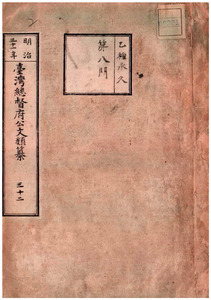 乙種永久
第八門
明治
三十一年
臺灣總督府公文類纂
三十二